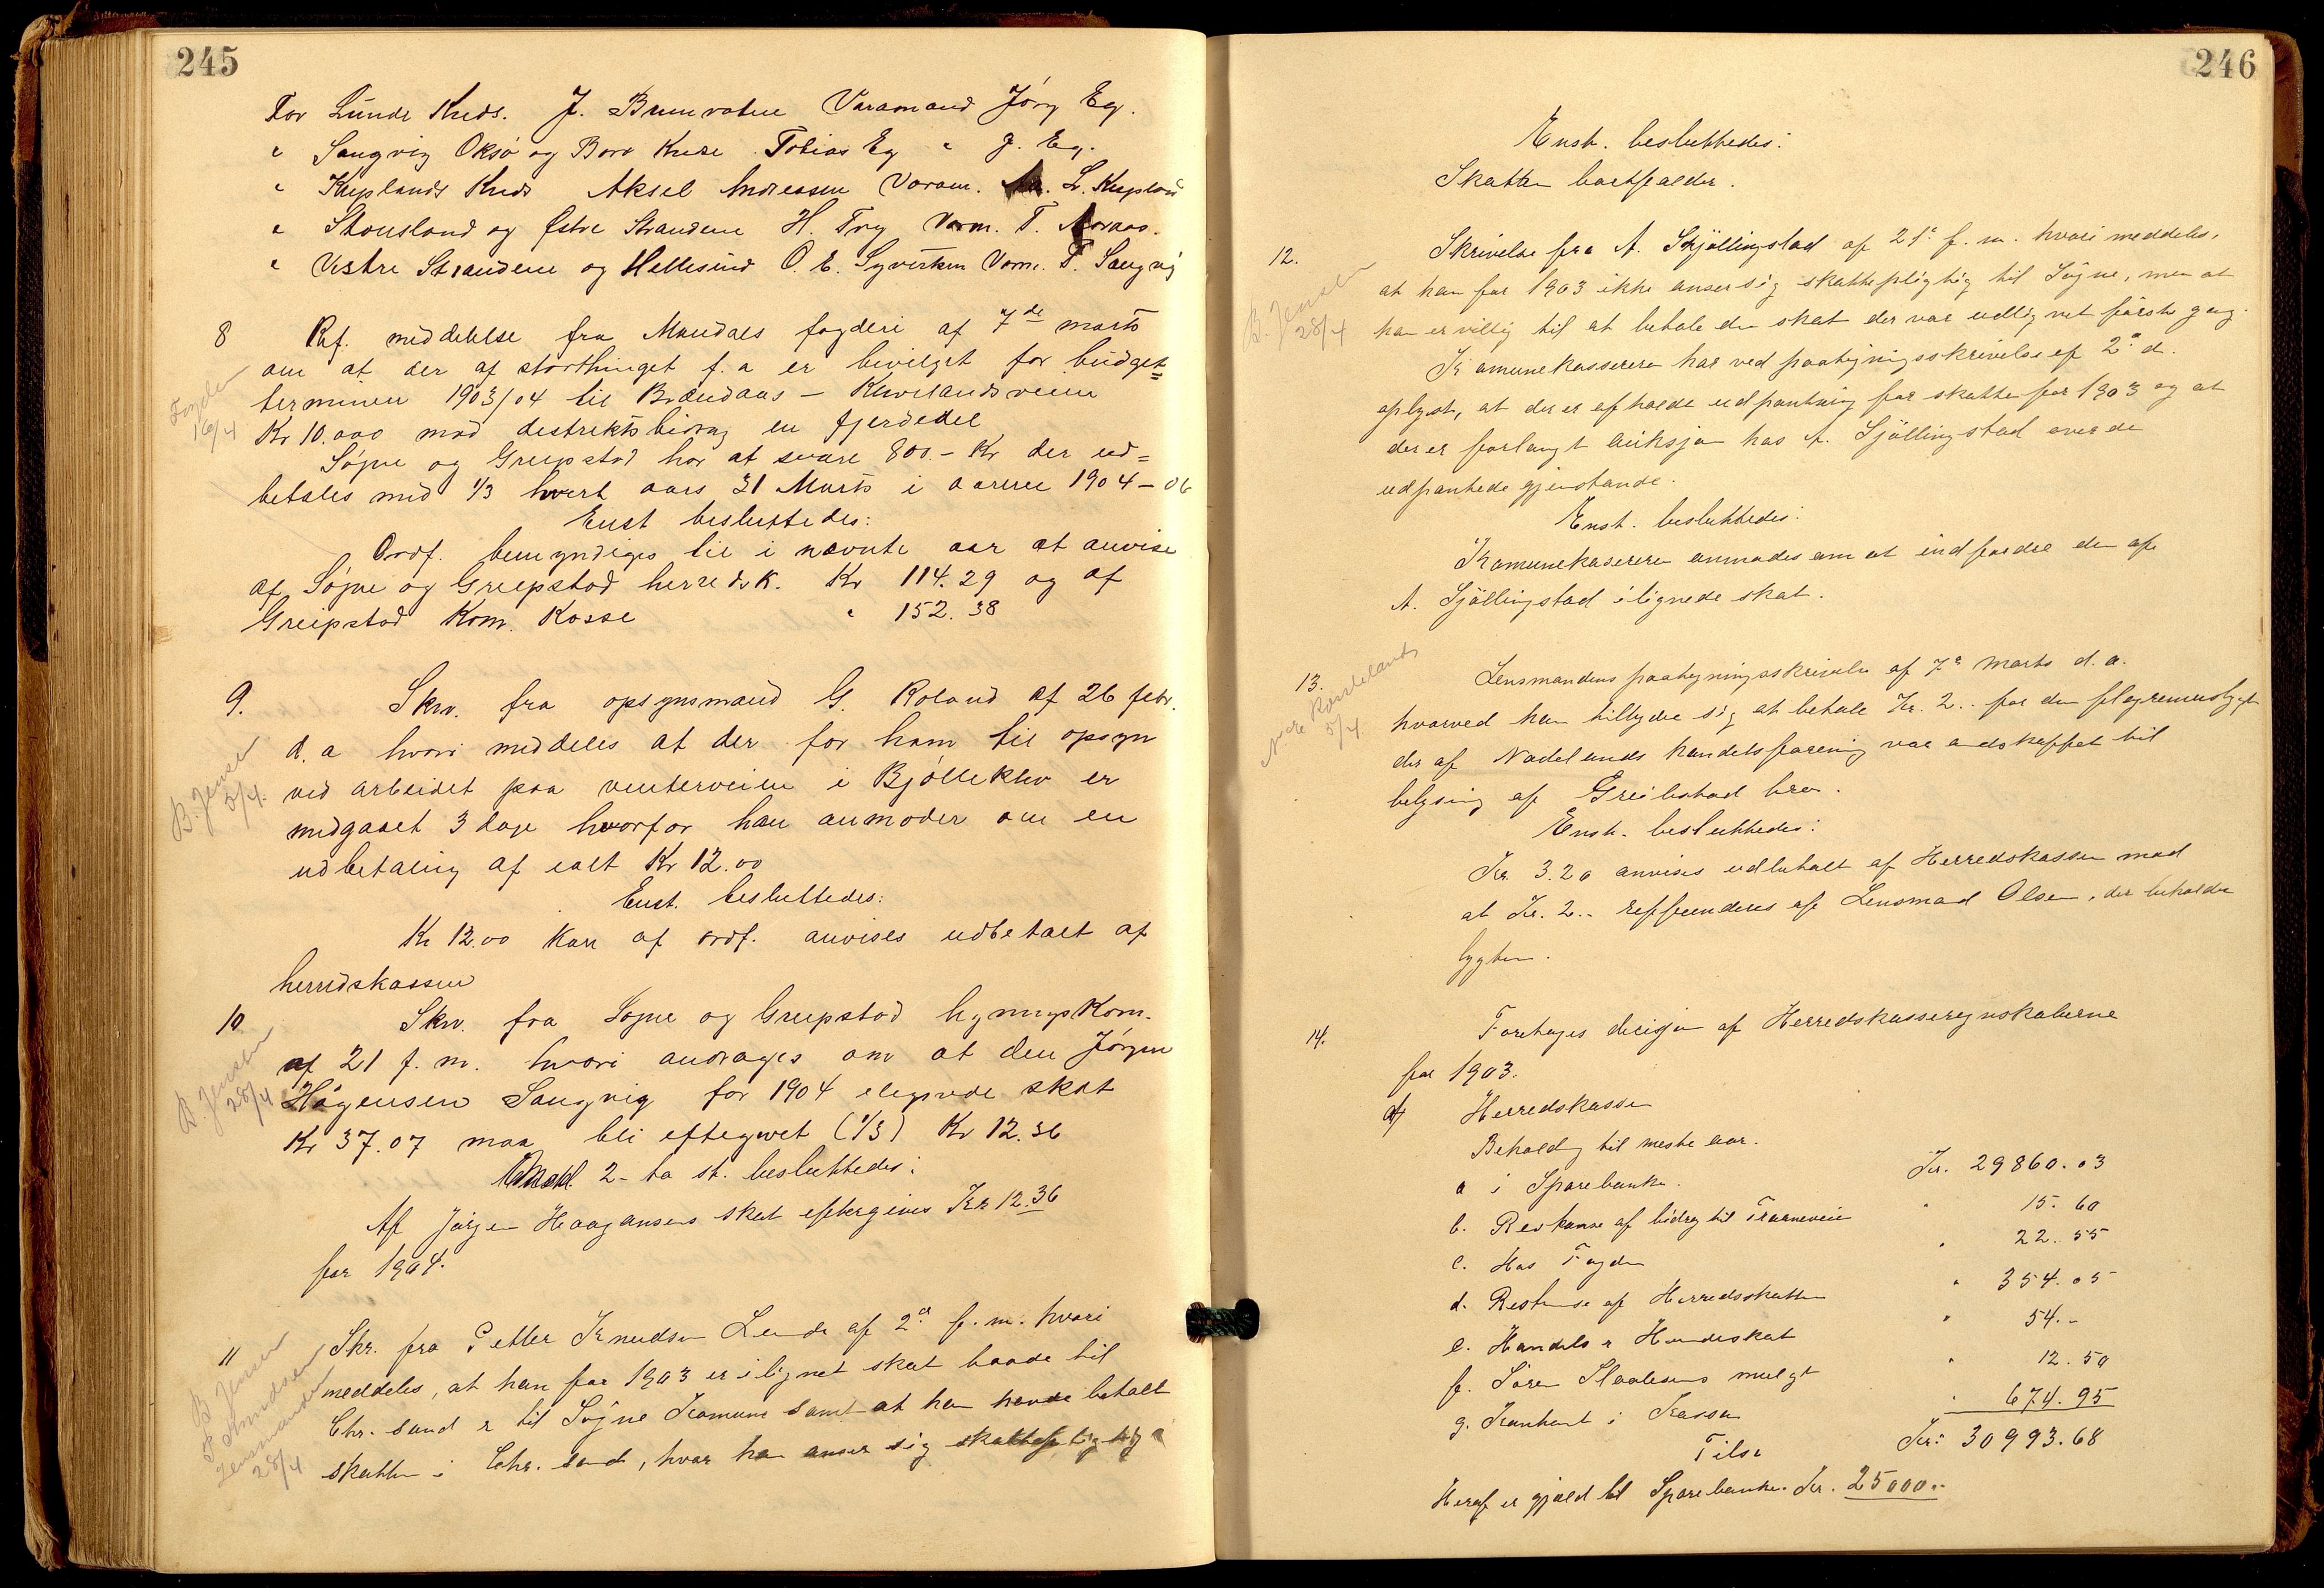 245
For Lunde Kreds. J. Brunvatne Varamand Jörg Eg.
" Sangvig Oksö og Borö Krese Tobias Eg " J. Eg.
" Kleplands Kreds Aksel Andreassen Varam. L. Klepland
" Stousland og Østre Strandene H. Try Varm. T. Aoraas.
" Vestre Strandene og Hellesund O. E. Syvertsen Varm. T. Sangvig
8 Ref. meddelelse fra Mandals fogderi af 7de marts
om at der af storthinget f. a er bevilget for budget=
terminen 1903/04 til Brændaas – Kleveland veien
Fogden 16/4
Kr 10.000 mod destriktsbidrag en fjerdedel
Søgne og Greepstad har at svare 800.- Kr der ud=
betales med 1/3 hvert aars 31 Marts i aarene 1904 – 06
Enst besluttedes:
Ordf. bemyndiges til i nævnte aar at anvise
af Søgne og Greepstad herredsk. Kr 114.29 og af
Greipstad Kom. Kasse " 152.38
9. Skriv. fra opsynsmand G. Roland af 26 febr.
d. a hvori meddeles at der for ham til opsyn
B. Jensen 5/4.
ved arbeidet paa venterveien i Bjölleklev er
medgaaet 3 dage hvorfor han anmoder om en
udbetaling af ialt Kr 12.00
Enst. besluttedes:
Kr 12.00 kan af ordf. anvises udbetalt af
herredskassen
10 Skriv. fra Søgne og Greepstad ligningskom.
af 21 f. m. hvori andrages om at den Jörgen
B Jensen 28/4
Hågensen Sangvig for 1904 ilignede skat
Kr 37.07 maa bli eftergivet (1/3) Kr 12.36
2-to st. besluttedes:
Af Jørgen Haagansens skat eftergives Kr 12.36
for 1904.
11 Skr. fra Petter Knudsen Lunde af 2den f. m. hvori
meddeles, at han for 1903 er ilignet skat baade til
B Jensen P Knudsen Lensmanden 28/4
Chr. sand & til Søgne Komune samt at han havde betalt
skatten i Chr. sand, hvor han anser sig skattepligtig
246
Enst. besluttedes:
Skatten bortfalder.
12. Skrivelse fra A. Skjöllingstad af 21de f. m. hvori meddeles,
at han for 1903 ikke anser sig skattepligtig til Søgne, men at
B. Jensen 28/4
han er villig til at betale den skat der var udlignet første gang.
Komunekassereren har ved paategningsskrivelse af 2den d.
oplyst, at der er afholdt udpantning for skatten for 1903 og at
der er forlangt auksjon hos A. Sjöllingstad over de
udpantede gjenstande.
Enst. besluttedes:
Komunekasereren anmodes om at indfordre den af
A. Sjöllingstad ilignede skat.
13. Lensmandens paategningsskrivelse af 7de marts d. a.
5/4
hvorved han tillyder sig at betale Kr. 2.. for den
der af Nodelands handelsforening var andskaffet til
belysning af Greibstad bro.
Enst. besluttedes:
Kr. 3.20 anvises udbetalt af Herredskassen mod
at Kr. 2.. reffunderes af Lensmand Olsen, der beholder
lygten.
14. Foretages decisjon af Herredskasseregnskaberne
for 1903.
Herredskassen
Beholdg til næste aar.
a i Sparebanken. Kr. 29860.03
b. Restanse af bidrag til Traaneveien " 15.60
c. Hos Fogden " 22.55
d. Restanse af Herredsskatten " 354.05
e. Handels & Hundeskat " 54.-
f. Sören Slaalesens mulgt " 12.50
g. Kontant i Kassen " 674.95
Tils. Kr. 30993.68
Heraf er gjæld til Sparebanken. Kr. 25000..